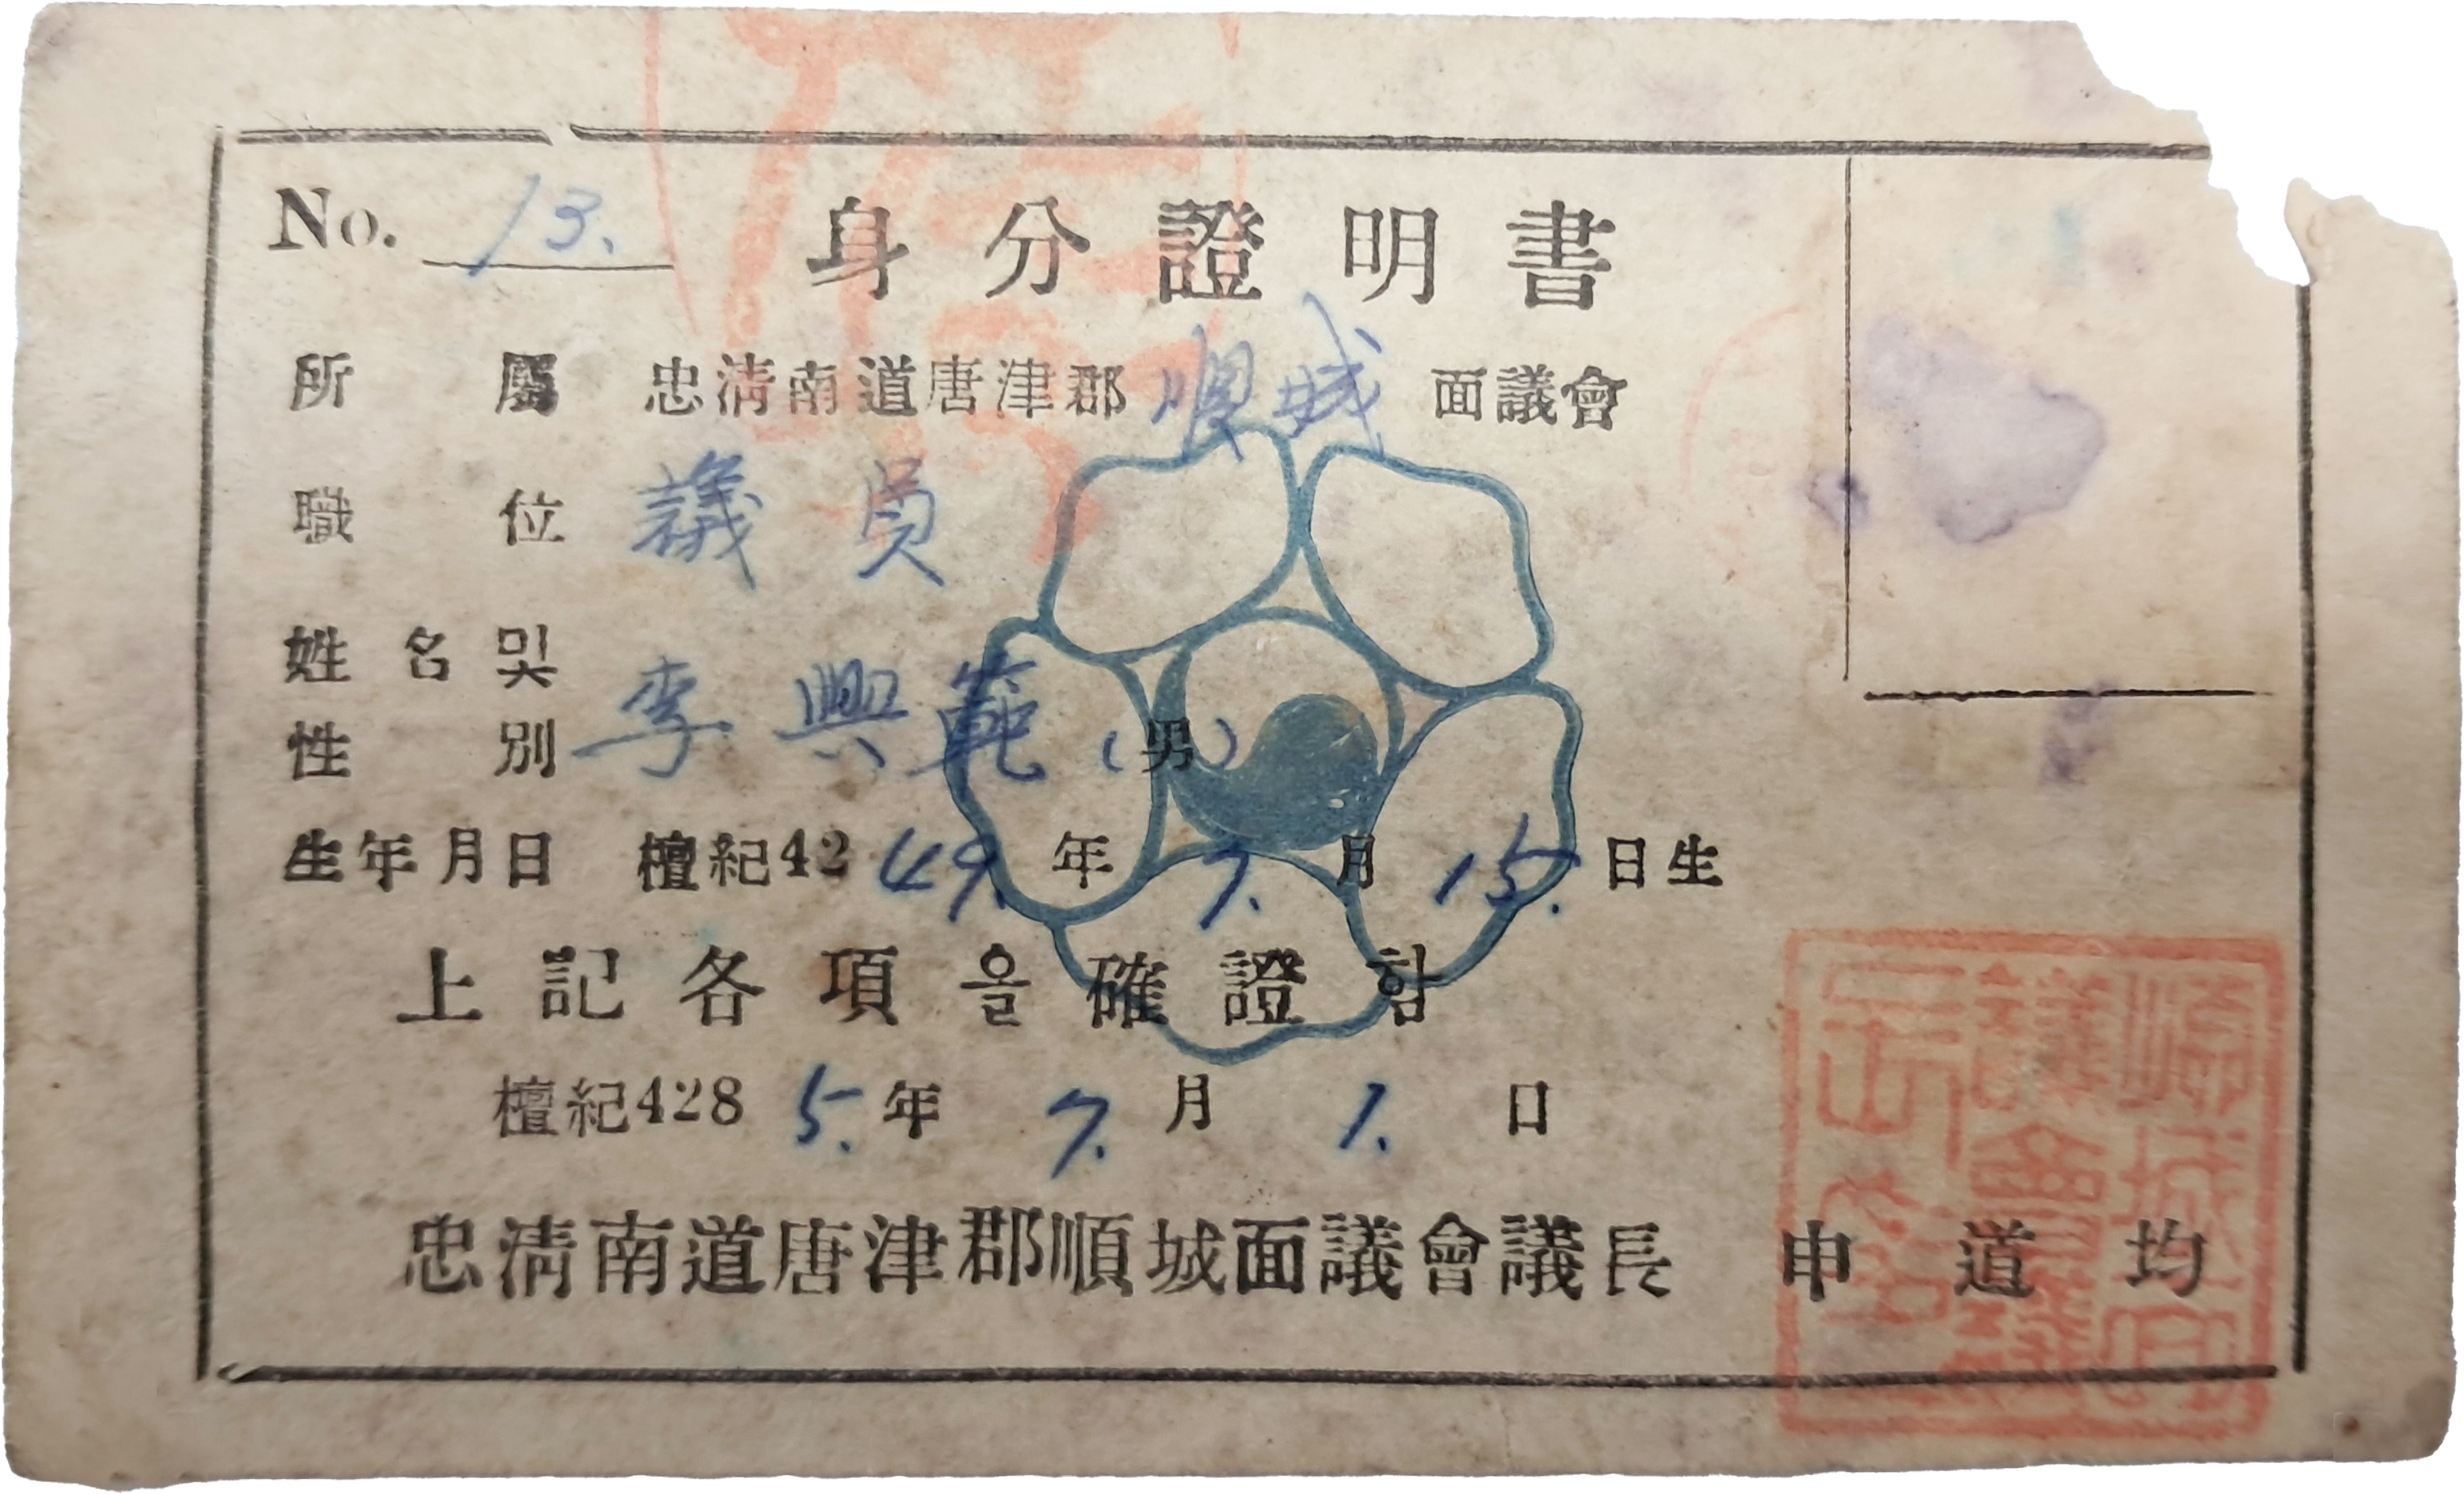 No. 13. 身分證明書
所屬 忠淸南道唐津郡 順城 面議會
職位 議員
姓名및
性別 李興範 (男)
生年月日 檀紀42 49. 年 7. 月 15. 日生
上記各項을確證함
檀紀428 5. 年 7. 月 1. 日
忠淸南道唐津郡順城面議會議長 申道均